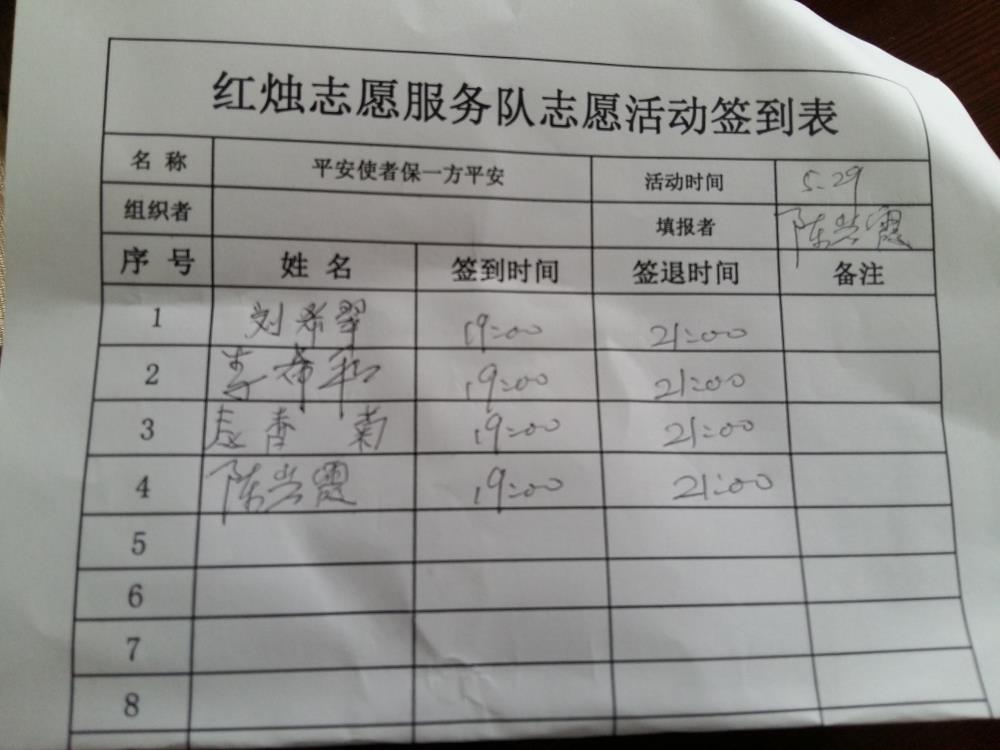 红烛志愿服务队志愿活动签到表
名 称 平安使者保一方平安 活动时间 5.29
组织者 填报者 陈兴霞
序 号 姓 名 签到时间 签退时间 备注
1 刘希翠 19:00 21:00
2 李希和 19:00 21:00
3 袁香菊 19:00 21:00
4 陈兴霞 19:00 21:00
5
6
7
8